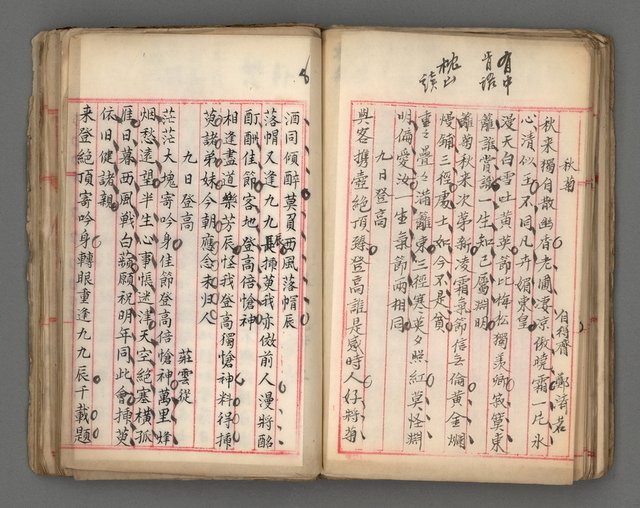 有中
肯語
枕山
讀
秋菊
自得齋 鄭濟若
秋来獨自散幽香老圃淒凉傲曉霜一片氷
心清似玉不同凡卉媚東皇
漫天白雪吐黄英節比梅松獨羡卿寂寞東
籬誰賞識一生知己屬淵明
籬菊秋来次苐新凌霜氣節信無倫黄金爛
熳鋪三徑處士如今不是貧
重々疊々滿籬東三徑寒英夕照紅莫怪淵
明偏愛汝一生氣節両相同
九日登高
與客攜壺絕頂臻登高誰是感時人好將菊
酒同傾醉莫負西風落帽辰
落帽又逢九九辰插萸我亦傚前人漫將酩
酊酬佳節客地登高倍愴神
相逢盡道樂芳辰怪我登高獨愴神料得插
萸諸弟妹今朝應念未归人
九日登高
莊雲從
茫茫大塊寄吟身佳節登高倍愴神萬里烽
烟愁遠望半生心事悵迷津天空絕塞橫孤
雁日暮西風戰白蘋願祝明年同此會插萸
依旧健諸親
来登絕頂寄吟身轉眼重逢九九辰千載題